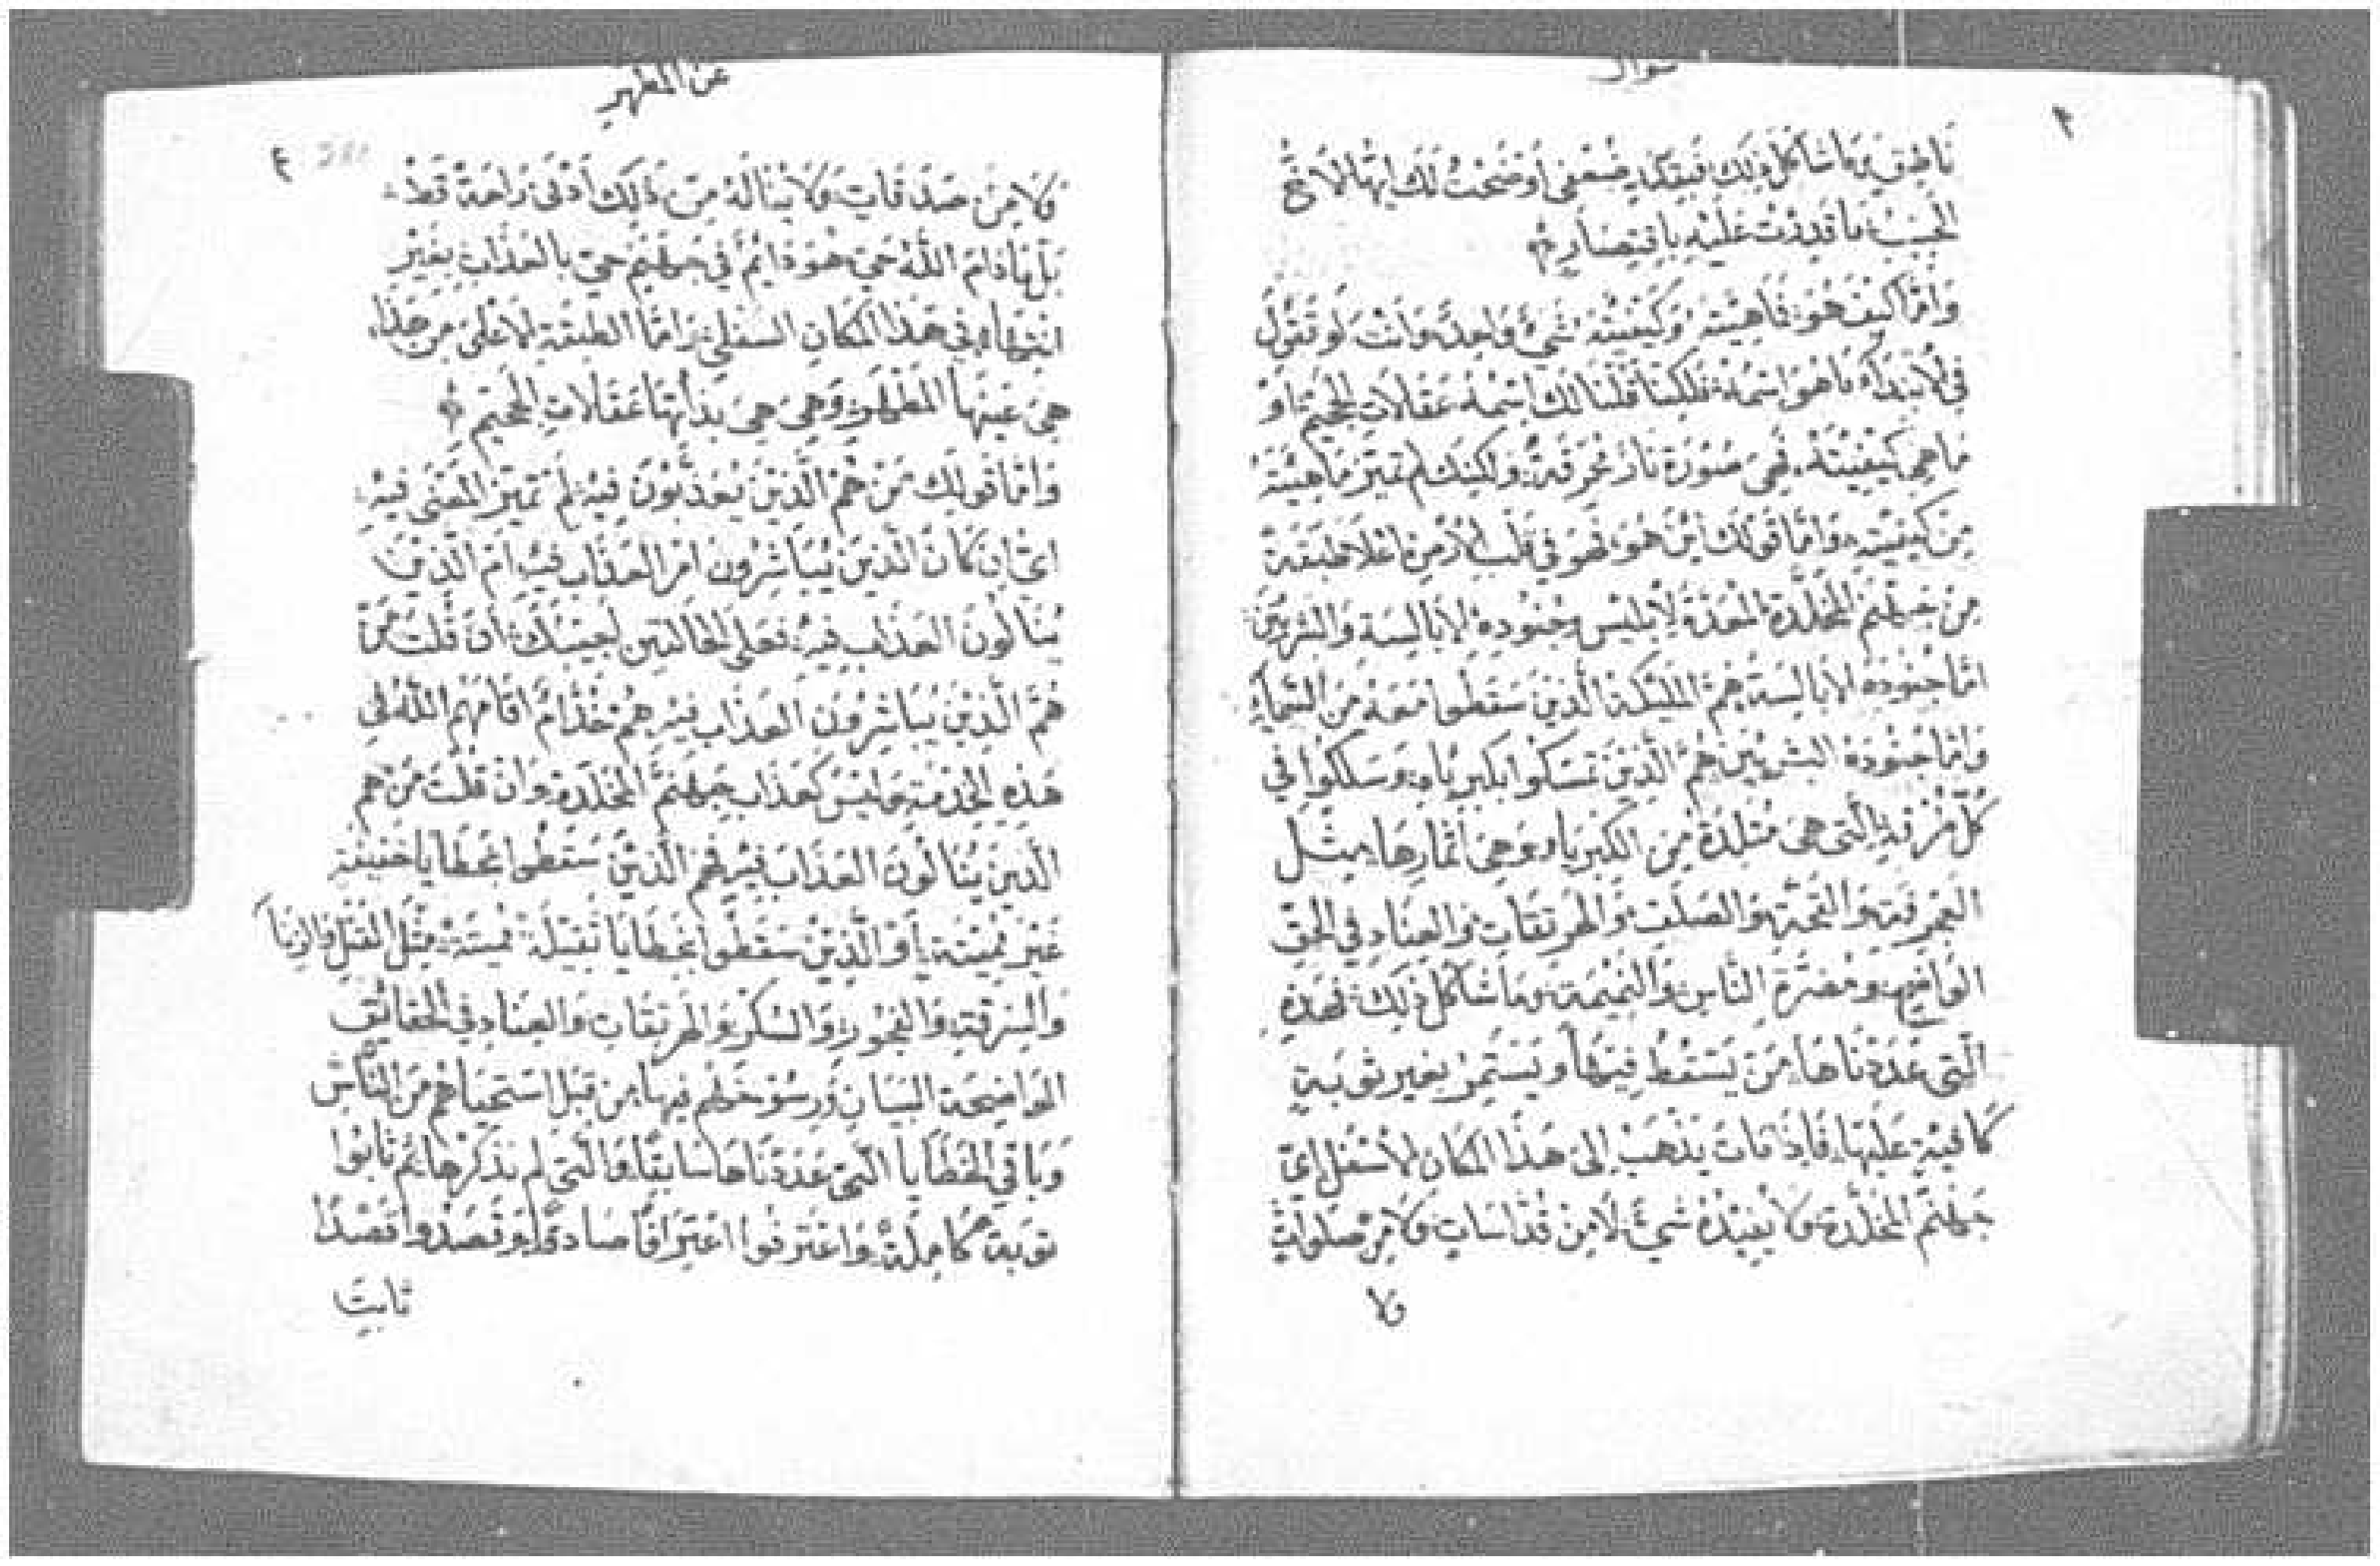 سوال
ناطق وما شاكل ذلك فبقدر ضعفي أوضحت لك ايها الاخ
الحبيب ما قدرت عليه باقتصار
وَامّا كيف هو فماهيته وكيفيته شيء واحد وانت لو تقول
في الابتداء ما هو اسمه فلكنا قلنا لك اسمه عقالات الجحيم او
ما هي كيفيته فهي صورة نار محرقة ولكنك لم تميز ماهيته
من كيفيته وامّا قولك اين هو فهو في قلب الارض اعلا طبقة
من جهنم المخلدة المعدة لابليس وجنوده الابالسة والبشريين
امّا جنوده الابالسة هم المليكة الذين سقطوا معه من السماء
وامّا جنوده البشريين هم الذين تمسكوا بكبرياه وسلكوا في
كل التي هي متلدة من الكبرياء وهي اثمارها مثل
العجرفة والصلف والهرتقات والعناد في الحق
الواضح ومضرة الناس والنميمة وما شاكل ذلك فهذه
التي عددناها من يسقط فيها ويستمر بغير توبة
كافية عليها فاذا مات يذهب الى هذا المكان الاسفل اي
جهنم المخلدة ولا يفيده شيء لا من قداسات ولا من صلوات
ولا
عن المطهر
٤
ولا من صدقات ولا يناله من ذلك ادنى راحة قط
بل ما دام الله حي هو دايم في جهنم حي بالعذاب بغير
انتهاء في هذا المكان السفلي وامّا الطبقة الاعلى من هذا
هي عينها المطهر وهي هي بذاتها عقالات الجحيم
وامّا قولك من هم الذين يعذبون فيه لم تميز المعنى فيه
اي ان كان الذين يباشرون امر العذاب فيه ام الذين
ينالون العذاب فيه فعلى الحالتين اجيبك ان قلت من
هم الذين يباشرون العذاب فيه هم خدام اقامهم الله في
هذه الخدمة وليس كعذاب جهنم المخلدة وان قلت من هم
الذين ينالون العذاب فيه فهم الذين سقطوا بخطايا خفيفة
غير مميتة او الذين سقطوا بخطايا ثقيلة مميتة مثل القتل والزنا
والسرقة والفجور والسكر والهرتقات والعناد في الحقائق
الواضحة البيان ورسوخهم فيها من قبل استحياهم من الناس
وباقي الخطايا التي عددناها سابقًا والتي لم نذكرها ثم تابوا
توبة كاملة واعترفوا اعترافًا صادقًا وقصدوا قصدًا
ثابت